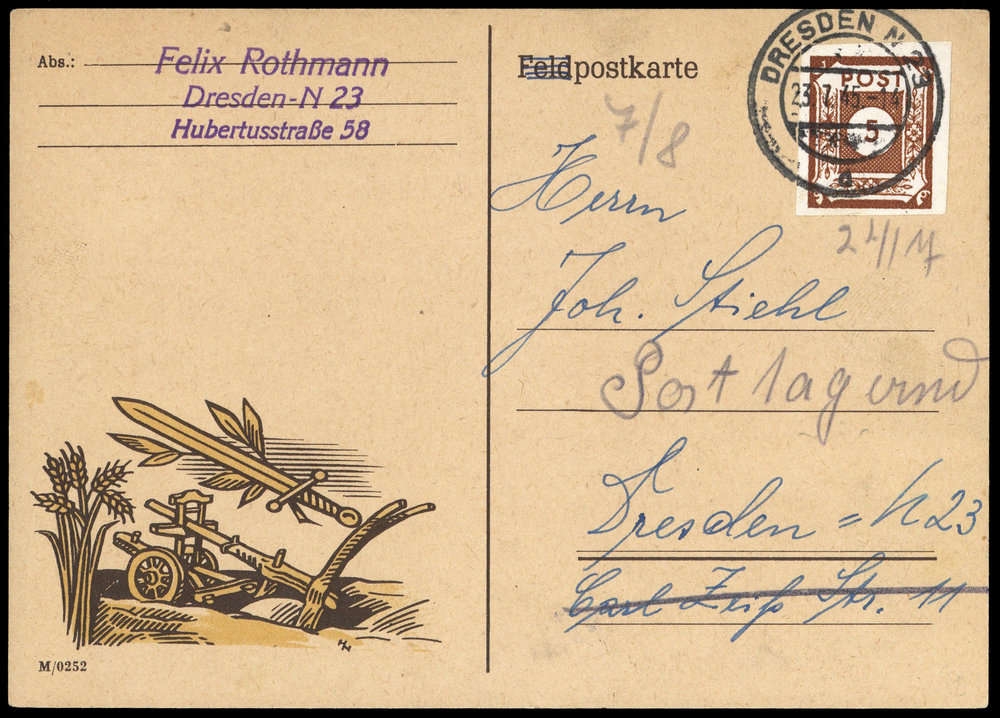 Abs.: Felix Rothmann
Dresden-N 23
Hubertusstraße 58
Feldpostkarte
DRESDEN N 23
23.7.45
a
POST
5
7/8
Herrn
Joh. Stiehl
Postlagernd
Dresden = N 23
Carl Zeiß Str. 11
M/0252